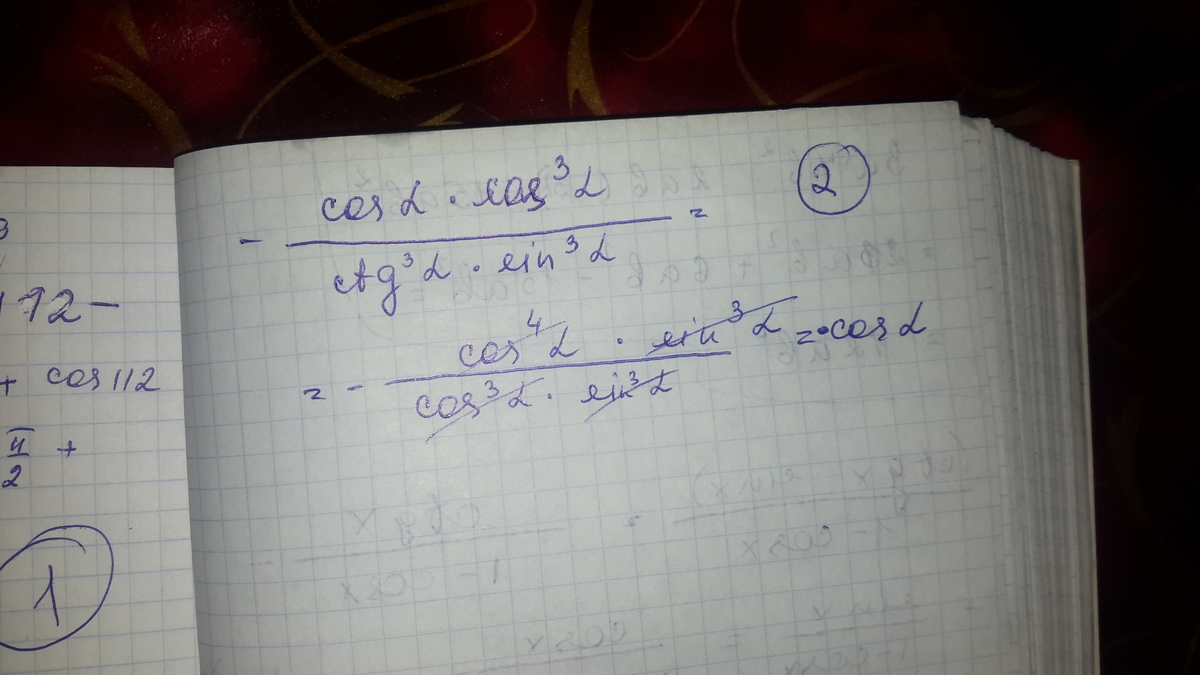 3
112 -
+ cos 112
π/2 +
1
2
- (cos α · cos³ α)/(ctg³ α · sin³ α) =
= - (cos⁴ α · sin³ α)/(cos³ α · sin³ α) = - cos α